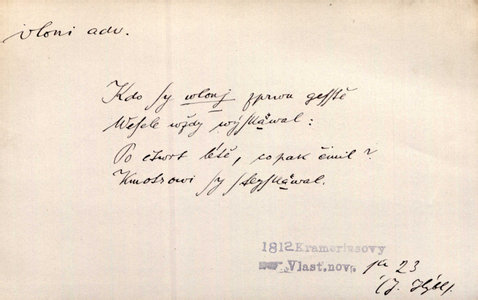 vloni adv.
Kdo sy wlonj zprwu gesstě
Wesele wždy weyskåwal:
Po čtwrt létě, co pak činil?
Kmotrowi sy steyskåwal.
1812 Krameriusovy
Vlast.nov.
23
(J.